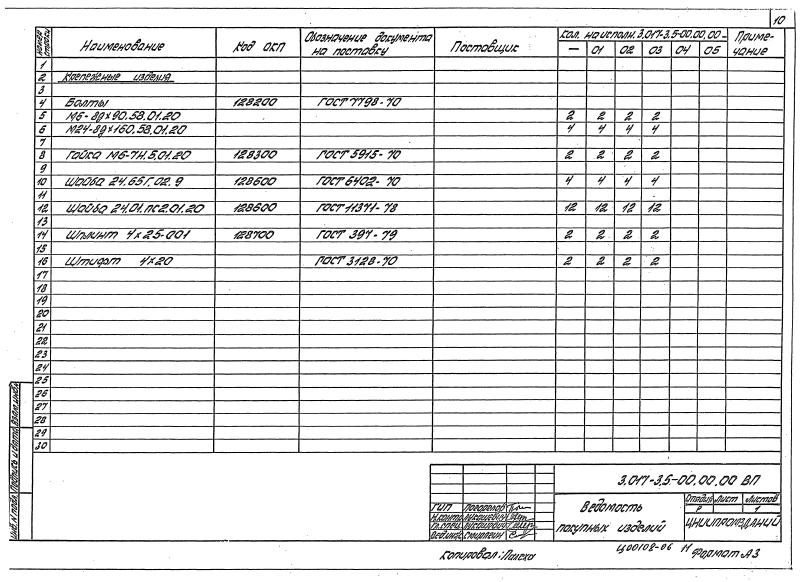 10
Номер строки Наименование Код ОКП Обозначение документа на поставку Поставщик Кол. на исполн. 3.017-3.5-00.00.00- Примечание
— 01 02 03 04 05
1
2 Крепежные изделия
3
4 Болты 128200 ГОСТ 7798-70
5 М6-8g×90.58.01.20 2 2 2 2
6 М24-8g×160.58.01.20 4 4 4 4
7
8 Гайка М6-7Н.5.01.20 128300 ГОСТ 5915-70 2 2 2 2
9
10 Шайба 24.65Г.02.9 128600 ГОСТ 6402-70 4 4 4 4
11
12 Шайба 24.01.пс2.01.20 128600 ГОСТ 11371-78 12 12 12 12
13
14 Шплинт 4×25-001 128700 ГОСТ 397-79 2 2 2 2
15
16 Штифт 4×20 ГОСТ 3128-70 2 2 2 2
17
18
19
20
21
22
23
24
25
26
27
28
29
30
Инв. № подл. Подпись и дата Взам. инв. №
3.017-3.5-00.00.00 ВП
ГИП
Н.контр. Лукашевич
Гл.спец. Лукашевич
Вед.инж. Смирягин
Ведомость покупных изделий
Стадия Лист Листов
Р 1
ЦНИИПРОМЗДАНИЙ
Копировал: Ц00108-06 11 Формат А3